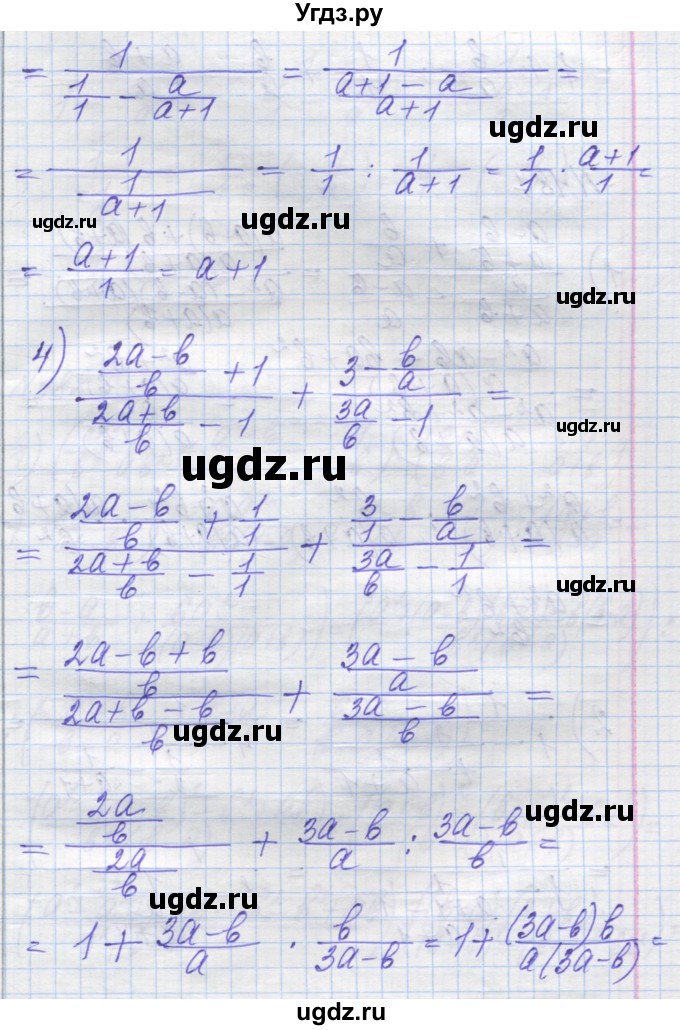 Угдз.ру
= 1/(1/1 - a/(a+1)) = 1/((a+1-a)/(a+1)) =
ugdz.ru
= 1/(1/(a+1)) = 1/1 : 1/(a+1) = 1/1 · (a+1)/1 =
ugdz.ru ugdz.ru
= (a+1)/1 = a+1
ugdz.ru
4) ((2a-b)/b + 1)/((2a+b)/b - 1) + (3 - b/a)/(3a/b - 1) =
ugdz.ru
ugdz.ru
= ((2a-b)/b + 1/1)/((2a+b)/b - 1/1) + (3/1 - b/a)/(3a/b - 1/1) =
ugdz.ru
= ((2a-b+b)/b)/((2a+b-b)/b) + ((3a-b)/a)/((3a-b)/b) =
ugdz.ru
ugdz.ru
= (2a/b)/(2a/b) + (3a-b)/a : (3a-b)/b =
ugdz.ru
= 1 + (3a-b)/a · b/(3a-b) = 1 + ((3a-b)b)/(a(3a-b)) =
ugdz.ru